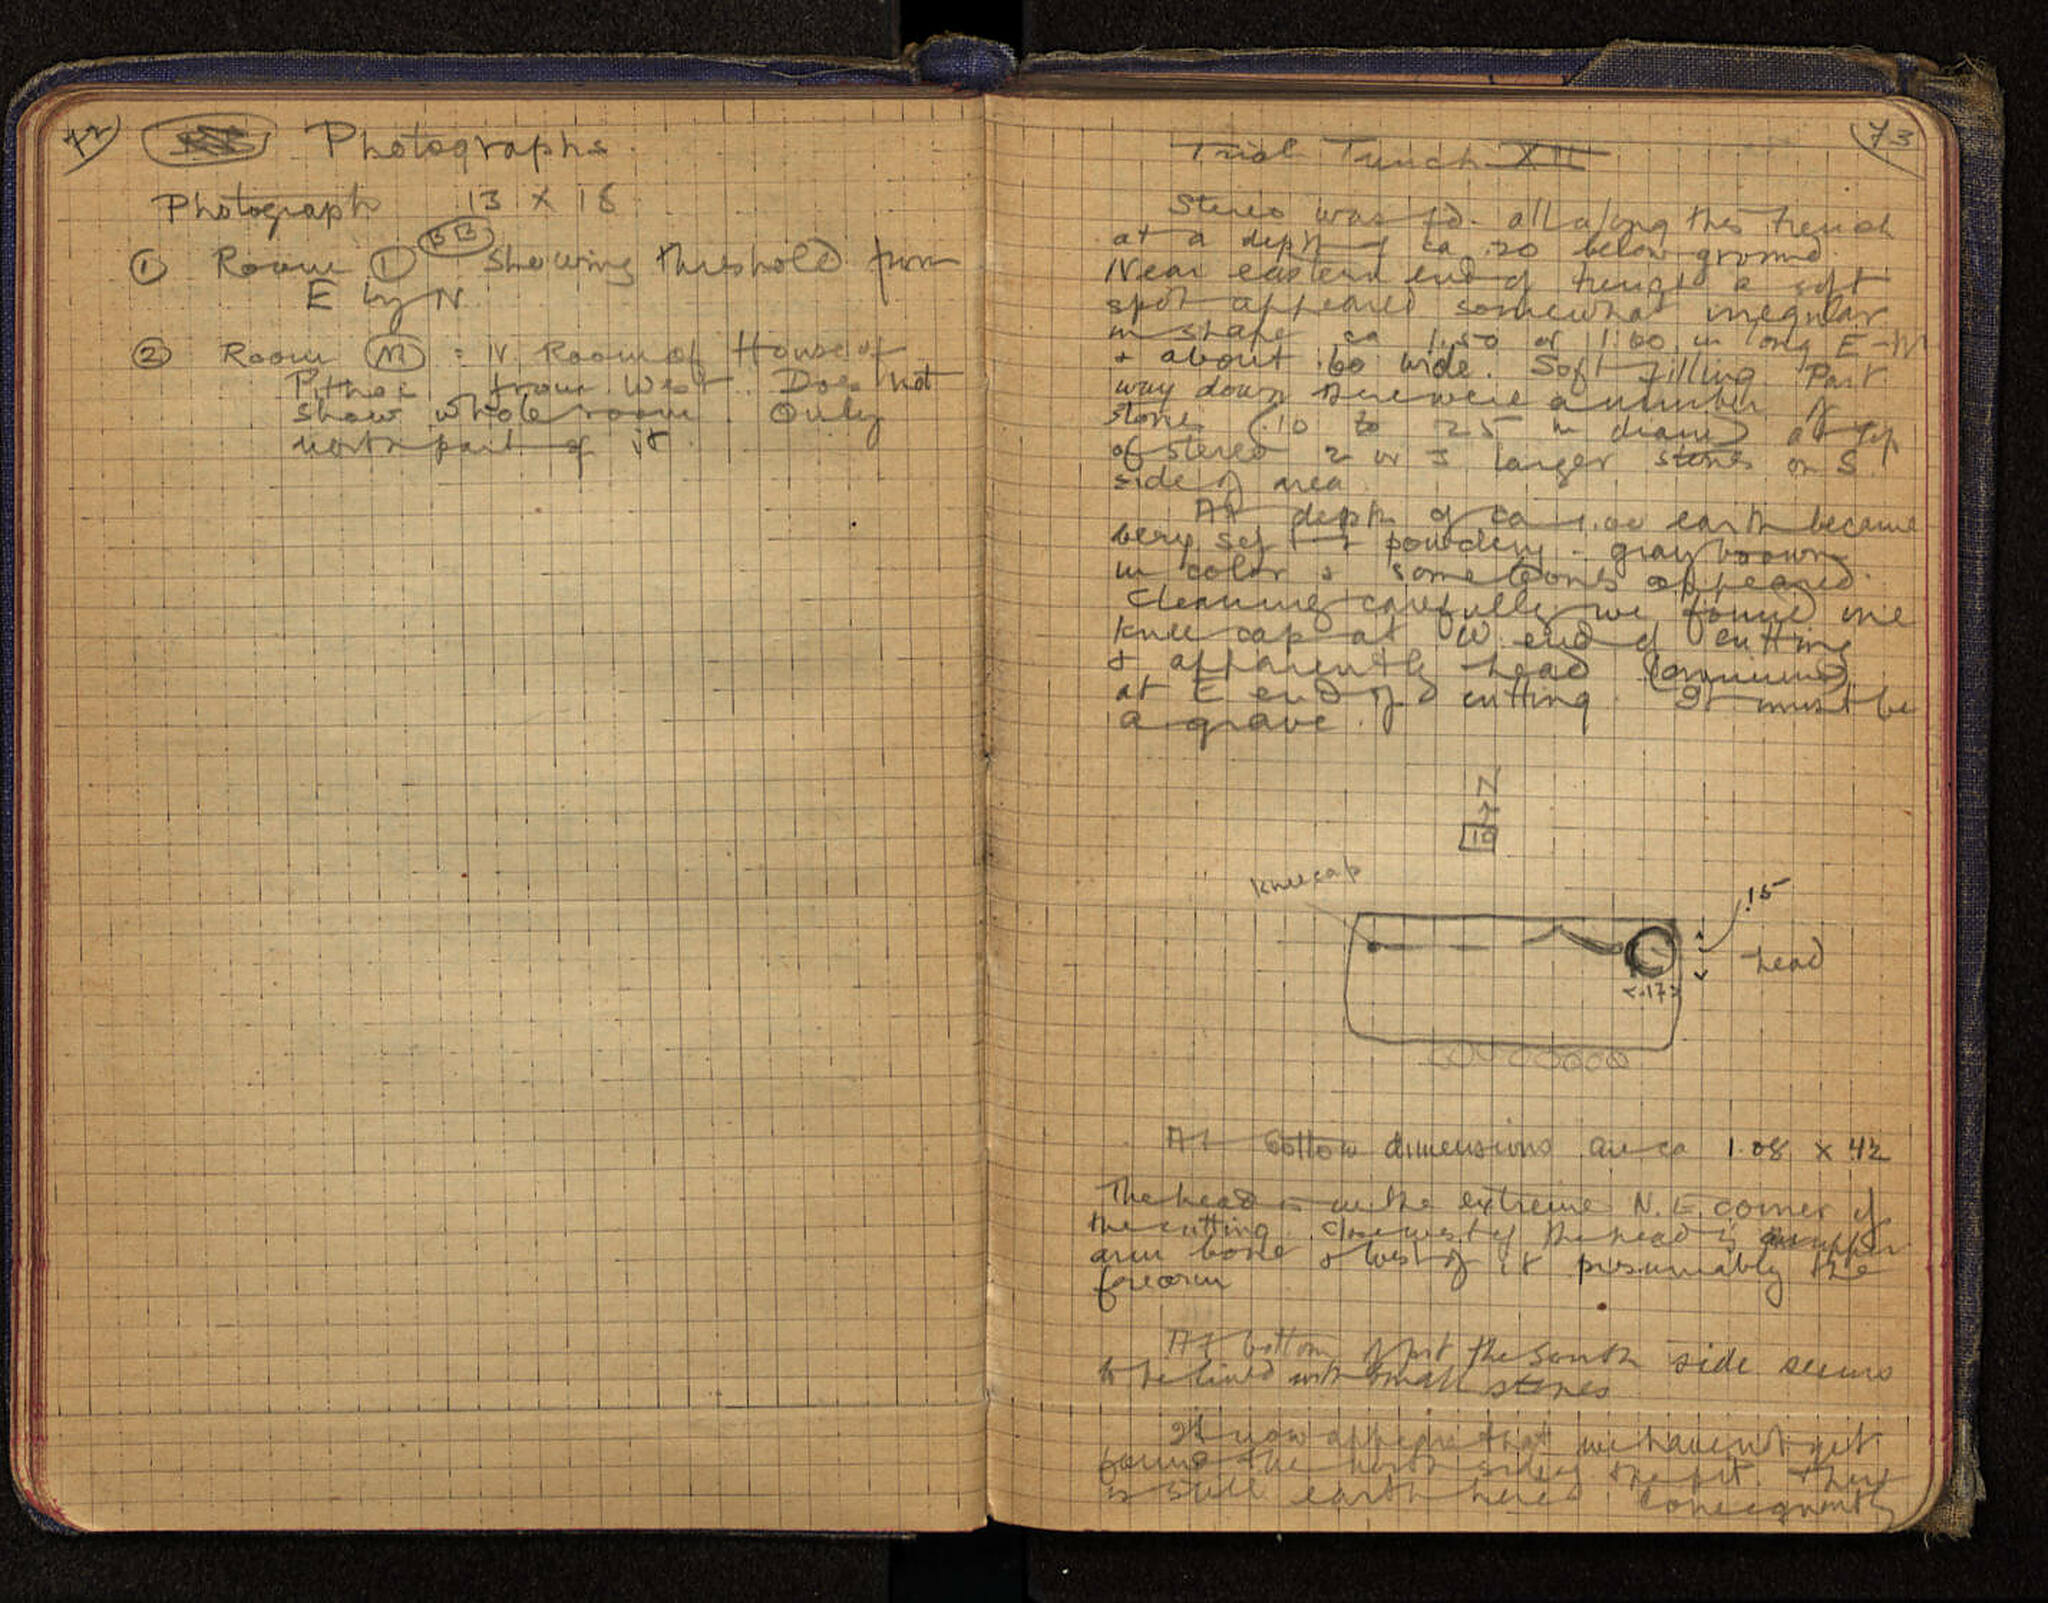 72
Photographs.
Photograph 13 x 18
① Room I BB Showing threshold from
E by N.
② Room M = N. Room of House of
Pithoi from West. Does not
show whole room. Only
north part of it.
73
Trial Trench XII
Stereo was fd. all along this trench
at a depth of ca .20 below ground.
Near eastern end of trench a soft
spot appeared somewhat irregular
in shape ca 1.50 or 1.60 m long E-W
& about .60 wide. Soft filling. Part
way down there were a number of
stones (.10 to .25 in diam) at top
of stereo 2 or 3 larger stones on S.
side of area.
At depth of ca 1.00 earth became
very soft & powdery - gray brown
in color & some bones appeared.
Cleaning carefully we found one
knee cap at W. end of cutting
& apparently head (cranium)
at E end of cutting. It must be
a grave.
N
↑
10
Kneecap
.15
head
<.17>
At bottom dimensions are ca 1.08 x 42
The head is in the extreme N.E. corner of
the cutting. Close west of the head is upper
arm bone & west of it presumably the
forearm
At bottom of pit the South side seems
to be lined with small stones
It now appears that we haven't yet
found the north side of the pit. There
is still earth here. Consequently